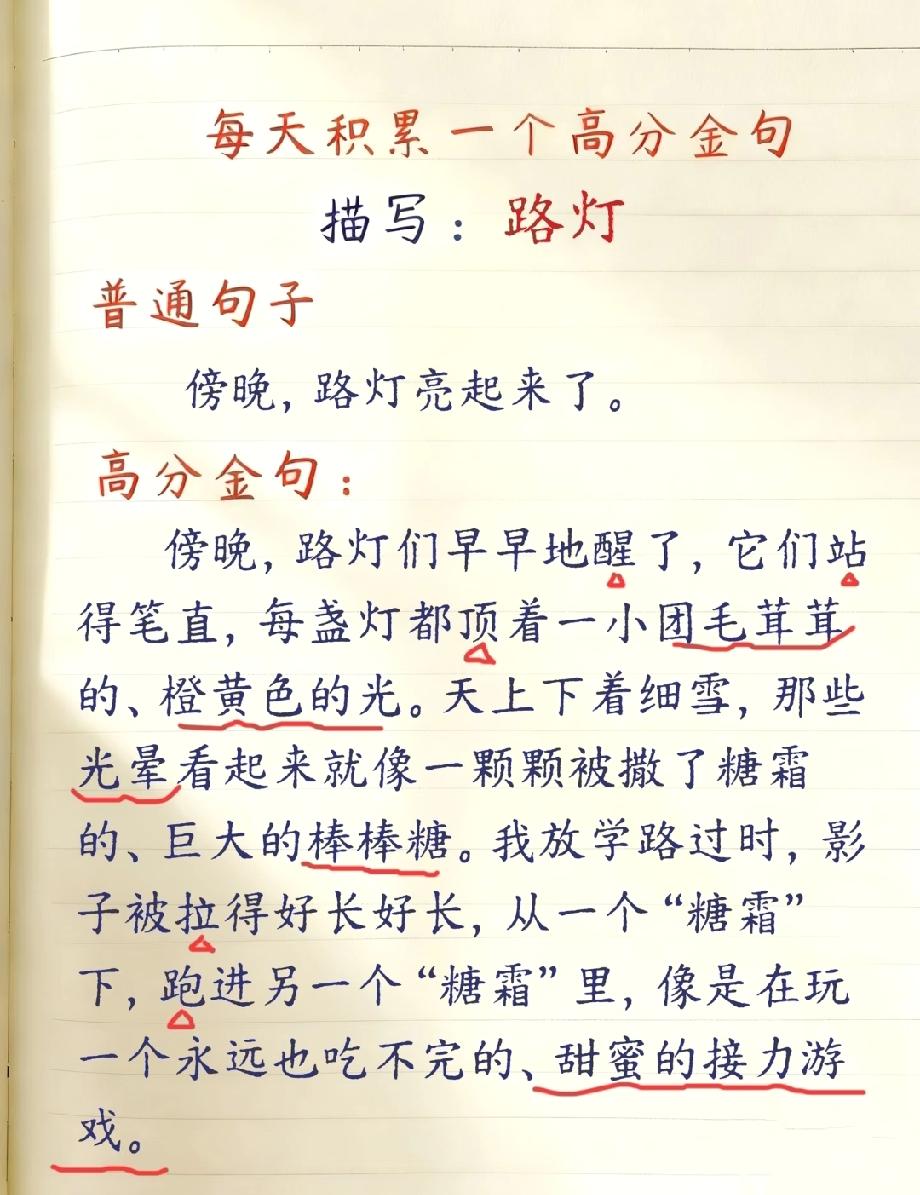 每天积累一个高分金句
描写：路灯
普通句子
傍晚，路灯亮起来了。
高分金句：
傍晚，路灯们早早地醒了，它们站
得笔直，每盏灯都顶着一小团毛茸茸
的、橙黄色的光。天上下着细雪，那些
光晕看起来就像一颗颗被撒了糖霜
的、巨大的棒棒糖。我放学路过时，影
子被拉得好长好长，从一个“糖霜”
下，跑进另一个“糖霜”里，像是在玩
一个永远也吃不完的、甜蜜的接力游
戏。